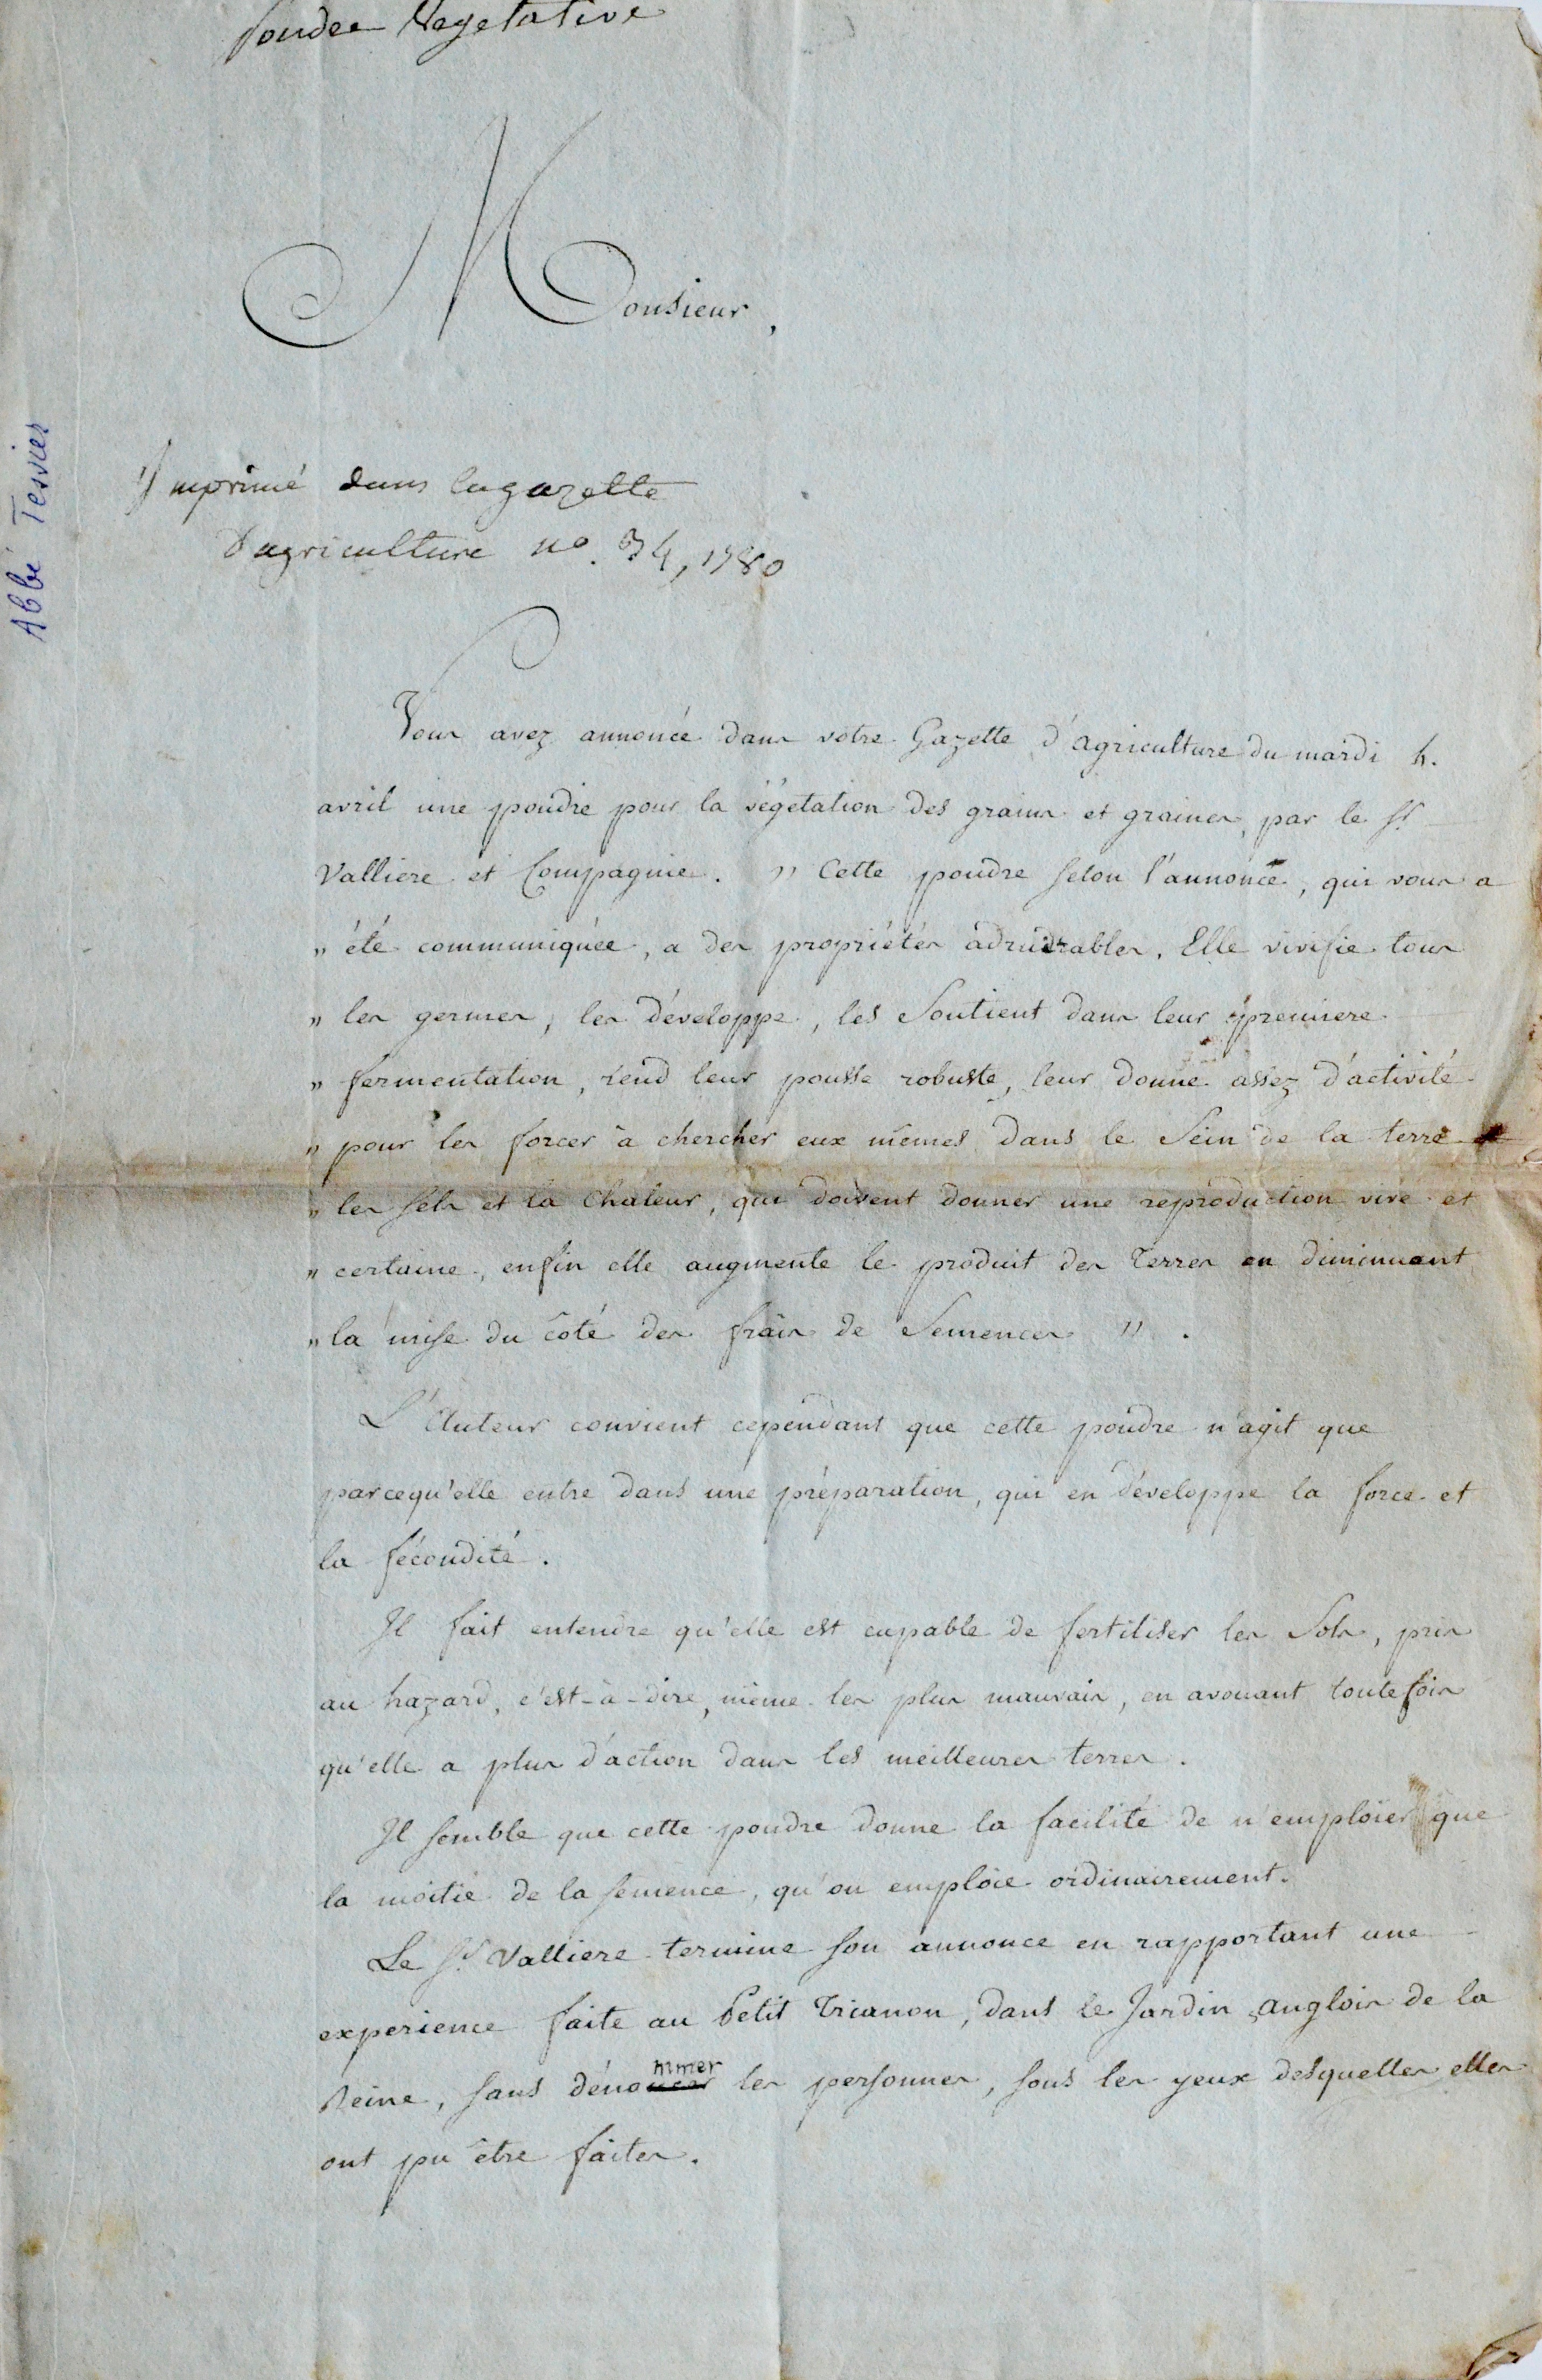 Poudre Vegetative
Monsieur,
Abbé Tessier
Imprimé dans lagazette
d'agriculture no. 34, 1780
Vous avez annoncé dans votre Gazette d'agriculture du mardi 4.
avril une poudre pour la végetation des grains et graines, par le Sr
Valliere et Compagnie. " Cette poudre selon l'annonce, qui vous a
" été communiquée, a des propriétés admirables. Elle vivifie tous
" les germes, les développe, les Soutient dans leur premiere
" fermentation, rend leur pousse robuste, leur donne assez d'activité
" pour les forcer à chercher eux mêmes dans le Sein de la terre
" les sels et la Chaleur, qui doivent donner une reproduction vive et
" certaine, enfin elle augmente le produit des Terres en diminuant
" la mise du côté des frais de Semences " .
L'Auteur convient cependant que cette poudre n'agit que
parcequ'elle entre dans une préparation, qui en développe la force et
la fécondité.
Il fait entendre qu'elle est capable de fertiliser les Sols, pris
au hazard, c'est-à-dire, même les plus mauvais, en avouant toutefois
qu'elle a plus d'action dans les meilleures terres.
Il semble que cette poudre donne la facilité de n'emploïer que
la moitié de la semence, qu'on emploie ordinairement.
Le Sr. Valliere termine son annonce en rapportant une
experience faite au Petit Trianon, dans le Jardin anglois de la
Reine, sans dénommer les personnes, sous les yeux desquelles elles
ont pu être faites.